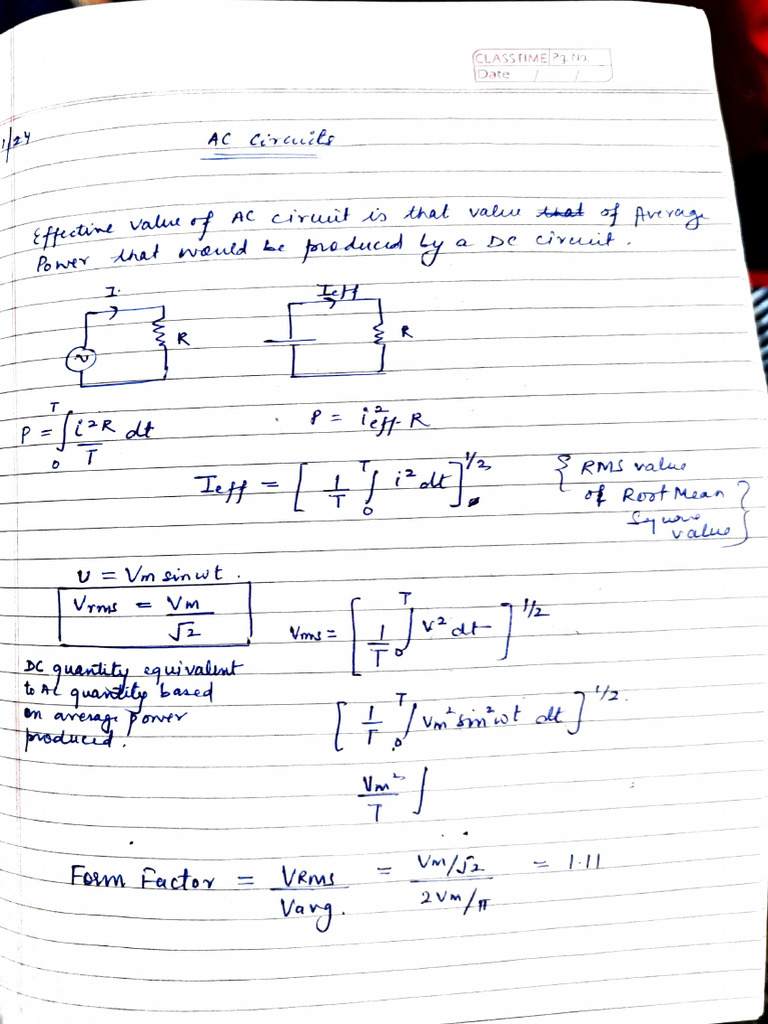 CLASSTIME Pg. No.
Date / /
1/24
AC Circuits
Effective value of AC circuit is that value that of Average
Power that would be produced by a DC circuit.
I.
Ieff
R
R
P = ∫₀ᵀ i²R/T dt
P = i²eff R
Ieff = [ 1/T ∫₀ᵀ i² dt ]^1/2
{ RMS value
of Root Mean
Square
value }
v = Vm sin wt.
Vrms = Vm/√2
Vrms = [ 1/T ∫₀ᵀ v² dt ]^1/2
DC quantity equivalent
to AC quantity based
on average power
produced.
[ 1/T ∫₀ᵀ Vm² sin² wt dt ]^1/2.
Vm²/T ∫
Form Factor = VRMS/Vavg. = Vm/√2 / 2Vm/π = 1.11